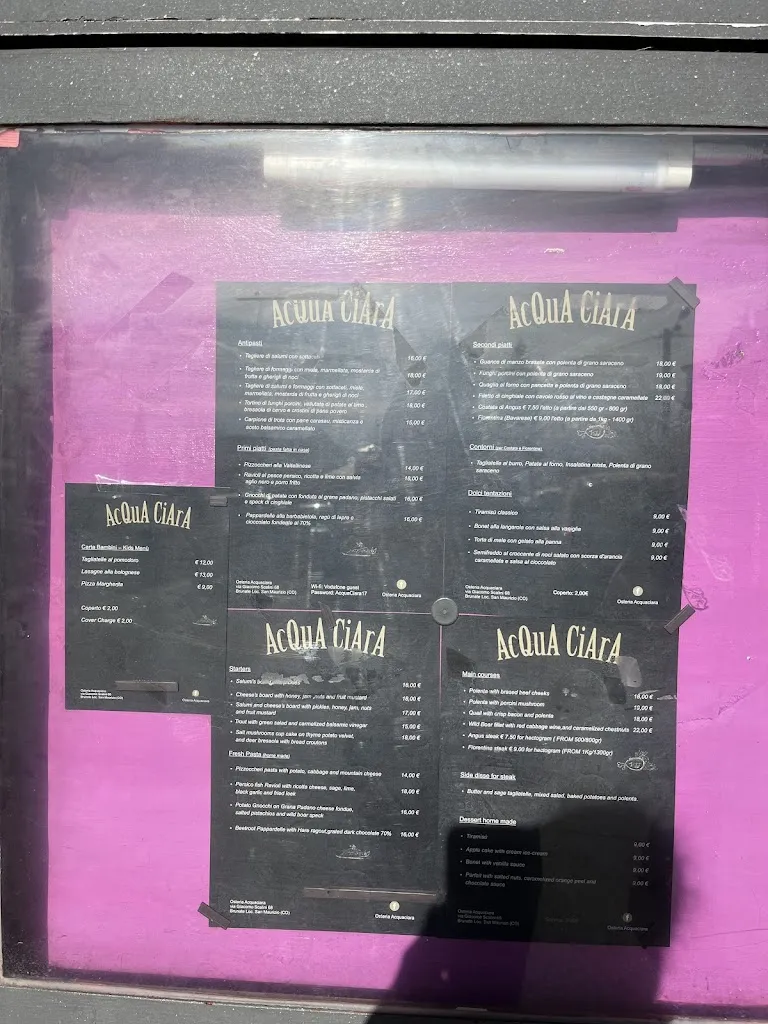 AcQUA CiArA
Antipasti
Tagliere di salumi con sottaceti 16,00 €
Tagliere di formaggi con miele, marmellata, mostarda di
frutta e gherigli di noci 18,00 €
Tagliere di salumi e formaggi con sottaceti, miele,
marmellata, mostarda di frutta e gherigli di noci 17,00 €
Tortino di funghi porcini, vellutata di patate al timo,
bresaola di cervo e crostini di pane povero 18,00 €
Carpione di trota con pane carasau, misticanza e
aceto balsamico caramellato 15,00 €
Primi piatti (pasta fatta in casa)
Pizzoccheri alla Valtellinese 14,00 €
Ravioli al pesce persico, ricotta e lime con salvia
aglio nero e porro fritto 18,00 €
Gnocchi di patate con fonduta di grana padano, pistacchi salati
e speck di cinghiale 16,00 €
Pappardelle alla barbabietola, ragù di lepre e
cioccolato fondente al 70% 16,00 €
Osteria Acquaciara
via Giacomo Scalini 68
Brunate Loc. San Maurizio (CO)
Wi-fi: Vodafone guest
Password: AcquaCiara17
Osteria Acquaciara
AcQUA CiArA
Secondi piatti
Guance di manzo brasate con polenta di grano saraceno 18,00 €
Funghi porcini con polenta di grano saraceno 19,00 €
Quaglia al forno con pancetta e polenta di grano saraceno 18,00 €
Filetto di cinghiale con cavolo rosso al vino e castagne caramellate 22,00 €
Costata di Angus € 7,50 l'etto (a partire dai 550 gr - 800 gr)
Fiorentina (Bavarese) € 9,00 l'etto (a partire da 1kg - 1400 gr)
Contorni (per Costata e Fiorentina)
Tagliatelle al burro, Patate al forno, Insalatine miste, Polenta di grano
saraceno
Dolci tentazioni
Tiramisù classico 9,00 €
Bonet alla langarola con salsa alla vaniglia 9,00 €
Torta di mele con gelato alla panna 9,00 €
Semifreddo al croccante di noci salato con scorza d'arancia
caramellata e salsa al cioccolato 9,00 €
Osteria Acquaciara
via Giacomo Scalini 68
Brunate Loc. San Maurizio (CO)
Coperto: 2,00€
Osteria Acquaciara
AcQUA CiArA
Carta Bambini – Kids Menù
Tagliatelle al pomodoro € 12,00
Lasagne alla bolognese € 13,00
Pizza Margherita € 9,00
Coperto € 2,00
Cover Charge € 2,00
Osteria Acquaciara
via Giacomo Scalini 68
Brunate Loc. San Maurizio (CO)
Osteria Acquaciara
AcQUA CiArA
Starters
Salumi's board 16,00 €
Cheese's board with honey, jam, nuts and fruit mustard 18,00 €
Salumi and cheese's board with pickles, honey, jam, nuts
and fruit mustard 17,00 €
Trout with green salad and carmelized balsamic vinegar 15,00 €
Salt mushrooms cup cake on thyme potato velvet,
and deer bressola with bread croutons 18,00 €
Fresh Pasta (home made)
Pizzoccheri pasta with potato, cabbage and mountain cheese 14,00 €
Persico fish Ravioli with ricotta cheese, sage, lime,
black garlic and fried leek 18,00 €
Potato Gnocchi on Grana Padano cheese fondue,
salted pistachios and wild boar speck 16,00 €
Beetroot Pappardelle with Hare ragout,grated dark chocolate 70% 16,00 €
Osteria Acquaciara
via Giacomo Scalini 68
Brunate Loc. San Maurizio (CO)
Osteria Acquaciara
AcQUA CiArA
Main courses
Polenta with brased beef cheeks 18,00 €
Polenta with porcini mushroom 19,00 €
Quail with crisp bacon and polenta 18,00 €
Wild Boar fillet with red cabbage wine,and caramelized chestnuts 22,00 €
Angus steak € 7.50 for hectogram ( FROM 500/800gr)
Fiorentina steak € 9.00 for hectogram (FROM 1Kg/1300gr)
Side disse for steak
Butter and sage tagliatelle, mixed salad, baked potatoes and polenta
Dessert home made
Tiramisù 9,00 €
Apple cake with cream ice-cream 9,00 €
Bonet with vanilla sauce 9,00 €
Parfait with salted nuts, caramelized orange peel and
chocolate sauce 9,00 €
Osteria Acquaciara
via Giacomo Scalini 68
Brunate Loc. San Maurizio (CO)
Osteria Acquaciara